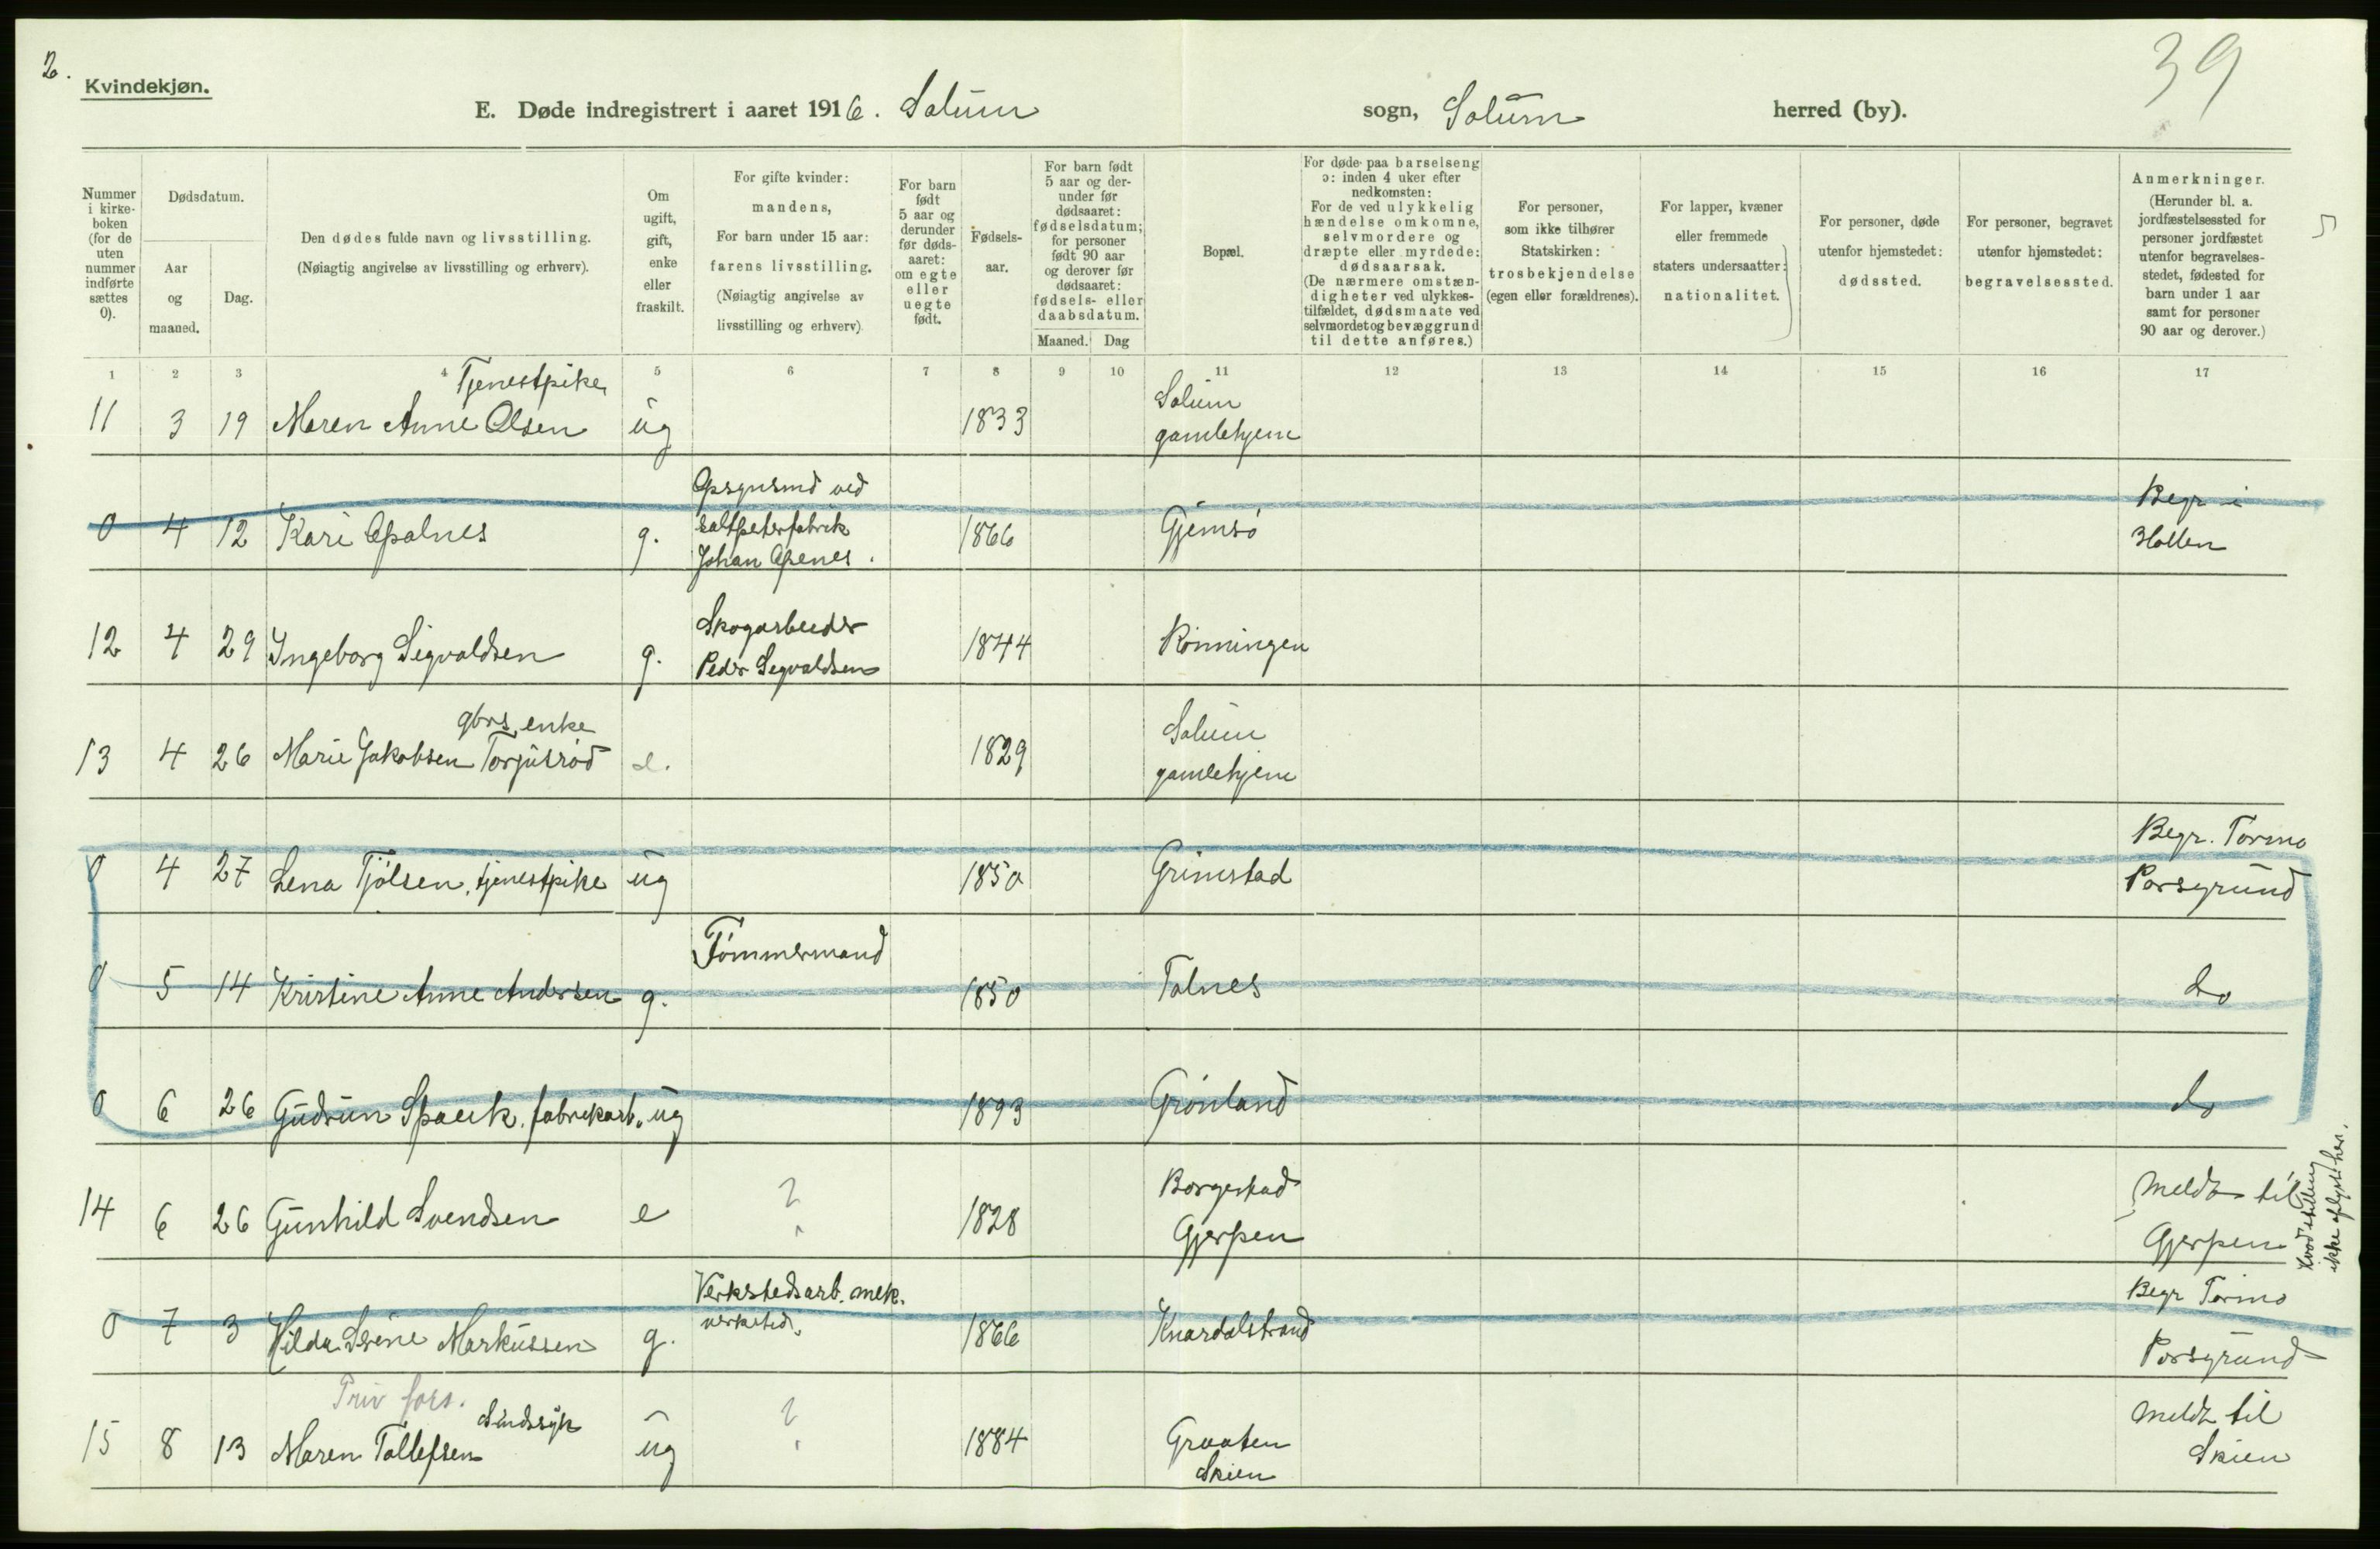 2.
Kvindekjøn.
39
E. Døde indregistrert i aaret 1916. Solum sogn, Solum herred (by).
Nummer i kirke-boken (for de uten nummer indførte sættes 0).
Dødsdatum.
Aar og maaned.
Dag.
Den dødes fulde navn og livsstilling.
(Nøiagtig angivelse av livsstilling og erhverv).
Om ugift, gift, enke eller fraskilt.
For gifte kvinder: mandens,
For barn under 15 aar: farens livsstilling.
(Nøiagtig angivelse av livsstilling og erhverv)
For barn født 5 aar og derunder før døds-aaret: om egte eller uegte født.
Fødsels-aar.
For barn født 5 aar og der-under før dødsaaret: fødselsdatum; for personer født 90 aar og derover før dødsaaret: fødsels- eller daabsdatum.
Maaned. Dag
Bopæl.
For døde paa barselseng ɔ: inden 4 uker efter nedkomsten:
For de ved ulykkelig hændelse omkomne, selvmordere og dræpte eller myrdede: dødsaarsak.
(De nærmere omstæn-digheter ved ulykkes-tilfældet, dødsmaate ved selvmordet og bevæggrund til dette anføres.)
For personer, som ikke tilhører Statskirken: trosbekjendelse (egen eller forældrenes).
For lapper, kvæner eller fremmede staters undersaatter: nationalitet.
For personer, døde utenfor hjemstedet: dødssted.
For personer, begravet utenfor hjemstedet: begravelsessted.
Anmerkninger.
(Herunder bl. a. jordfæstelsessted for personer jordfæstet utenfor begravelses-stedet, fødested for barn under 1 aar samt for personer 90 aar og derover.)
1 2 3 4 5 6 7 8 9 10 11 12 13 14 15 16 17
Tjenestpike
11 3 19 Maren Anne Olsen ug 1833 Solum gamlehjem
0 4 12 Kari Apalnes g. Opsynsmd ved saltpeterfabrik Johan Apenes. 1866 Gjemsø Begr i Hollen
12 4 29 Ingeborg Sigvaldsen g. Skogarbeider Peder Sigvaldsen 1844 Rønningen
gbrs. enke
13 4 26 Marie Jakobsen Torjusrød e. 1829 Solum gamlehjem
0 4 27 Lena Tjølsen, tjenestpike ug 1850 Grimstad Begr. Tormo Porsgrund
0 5 14 Kristine Anne Andersen g. Tømmermand 1850 Tolnes do
0 6 26 Gudrun Spaerk. fabrikarb. ug 1893 Grønland do
14 6 26 Gunhild Svendsen e ? 1828 Borgestad Gjerpen Meldt til Gjerpen
Livsstilling ikke oplyst her.
0 7 3 Hilda Severine Markussen g. Verkstedsarb. mek. verksted. 1866 Knardalstrand Begr Tormo Porsgrund
Priv fors. Sindssyk
15 8 13 Maren Tollefsen ug ? 1884 Graaten Skien Meldt til Skien